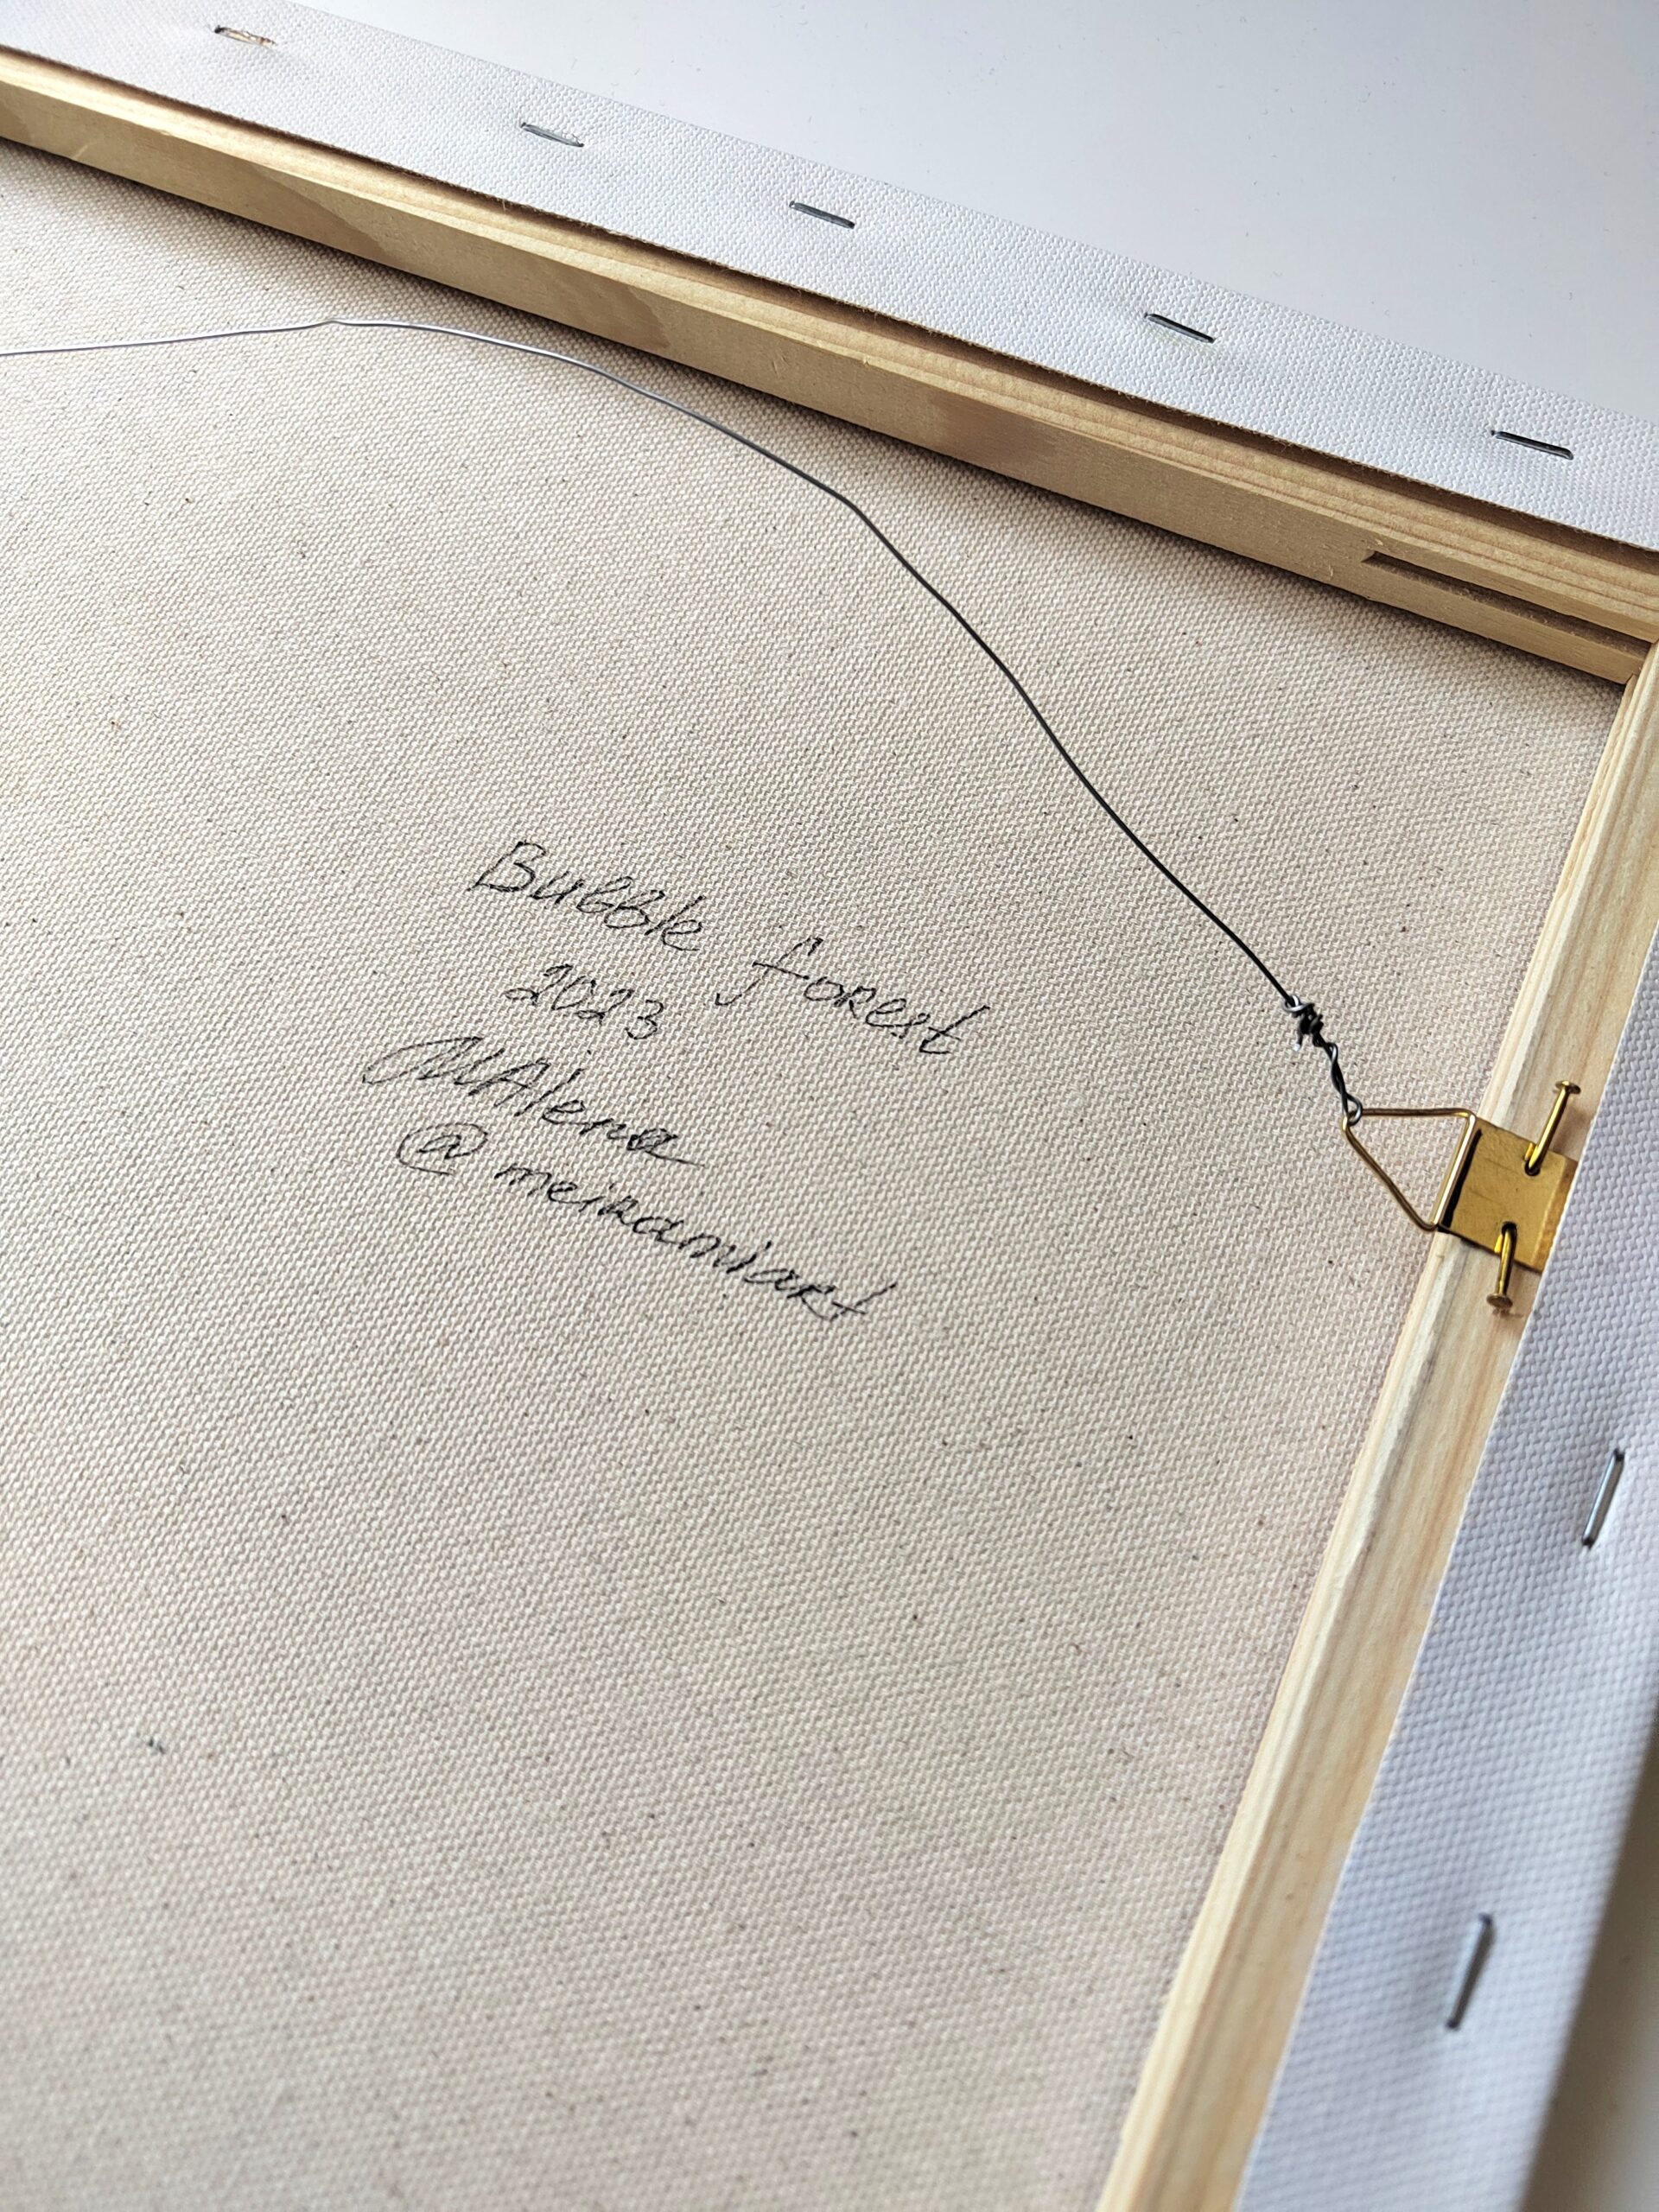 Bubble forest
2023
MAlena
@meikamiart